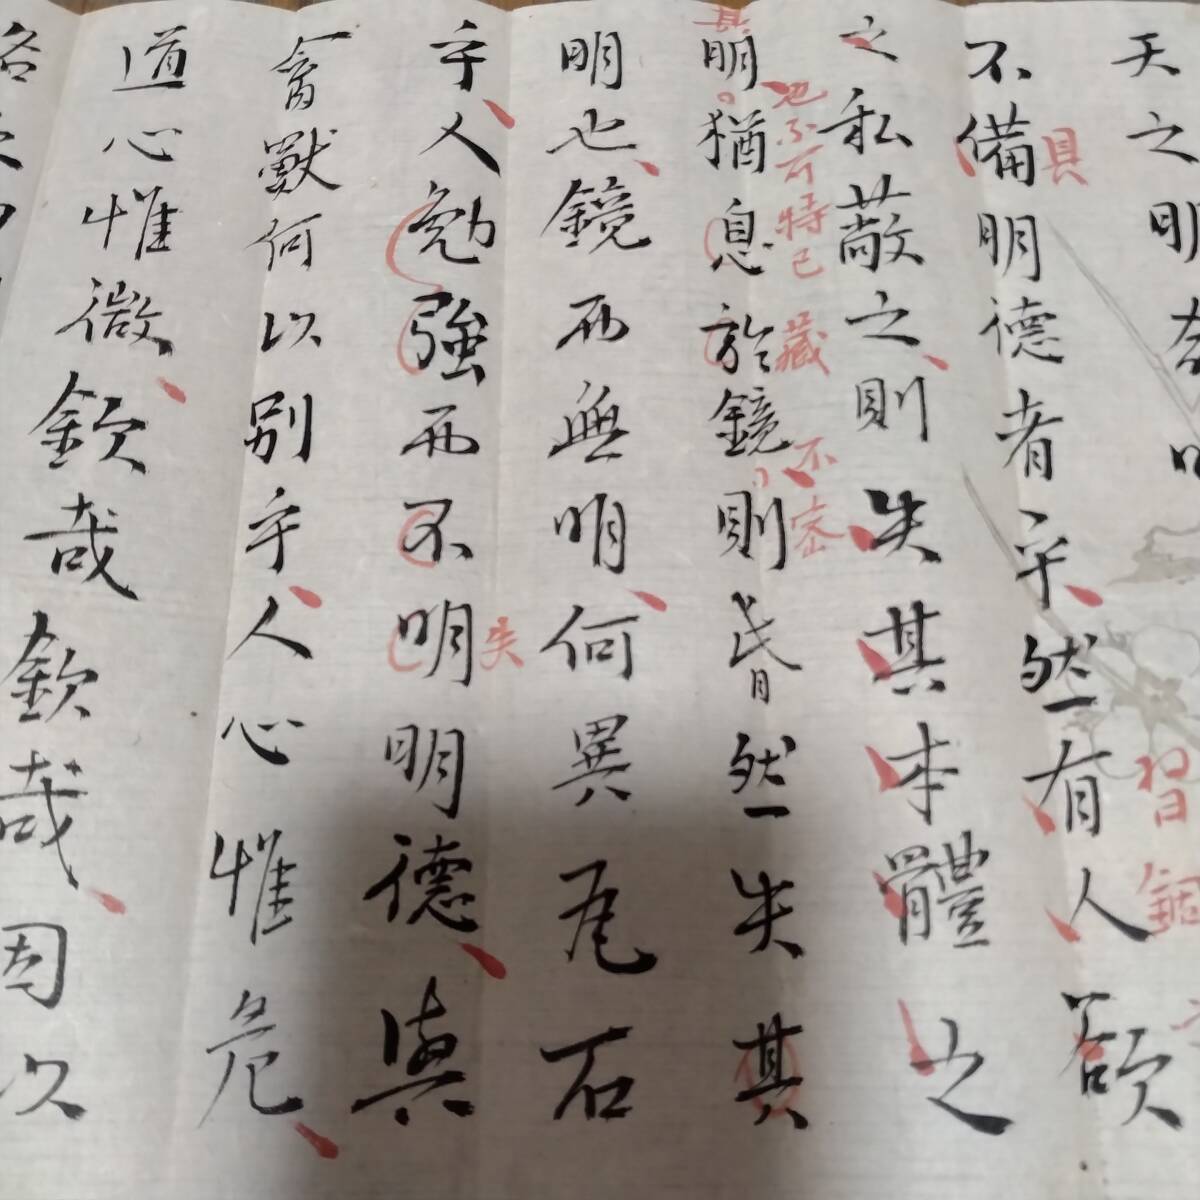 天之明
不備明德者乎然有人欲
具
習錮
之私蔽之則失其本體之
明猶息於鏡則昏然失其
其
也不可恃己
藏
不密
明也鏡而無明何異瓦石
乎人勉強而不明明德與
失
禽獸何以別乎人心惟危
道心惟微欽哉欽哉因次